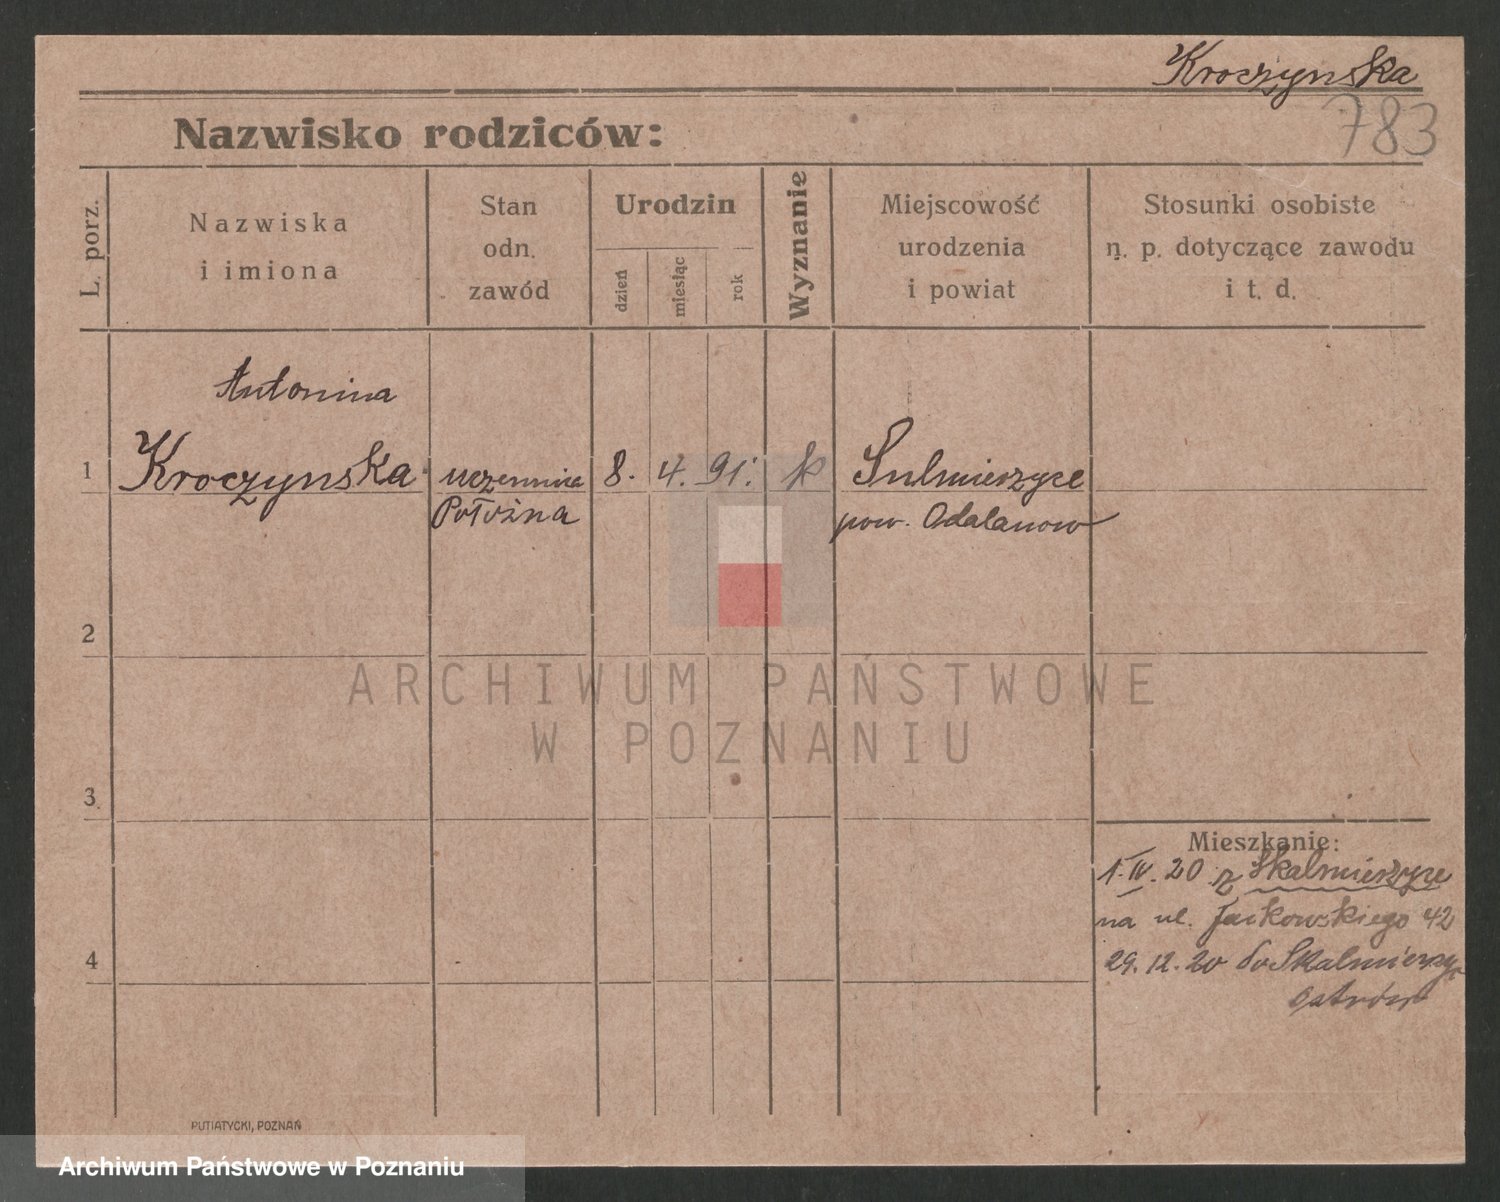 Kroczynska
783
Nazwisko rodziców:
L. porz.
Nazwiska
i imiona
Stan
odn.
zawód
Urodzin
dzień
miesiąc
rok
Wyznanie
Miejscowość
urodzenia
i powiat
Stosunki osobiste
n. p. dotyczące zawodu
i t. d.
Antonina
1 Kroczynska uczennica 8. 4. 91. k Sulmierzyce
Położna pow. Odalanow
2
3
4
Mieszkanie:
1.IV.20 z Skalmierzyce
na ul. Jackowskiego 42
29.12.20 do Skalmierzyc
Ostrów
ARCHIWUM PAŃSTWOWE
W POZNANIU
PUTIATYCKI, POZNAŃ
Archiwum Państwowe w Poznaniu